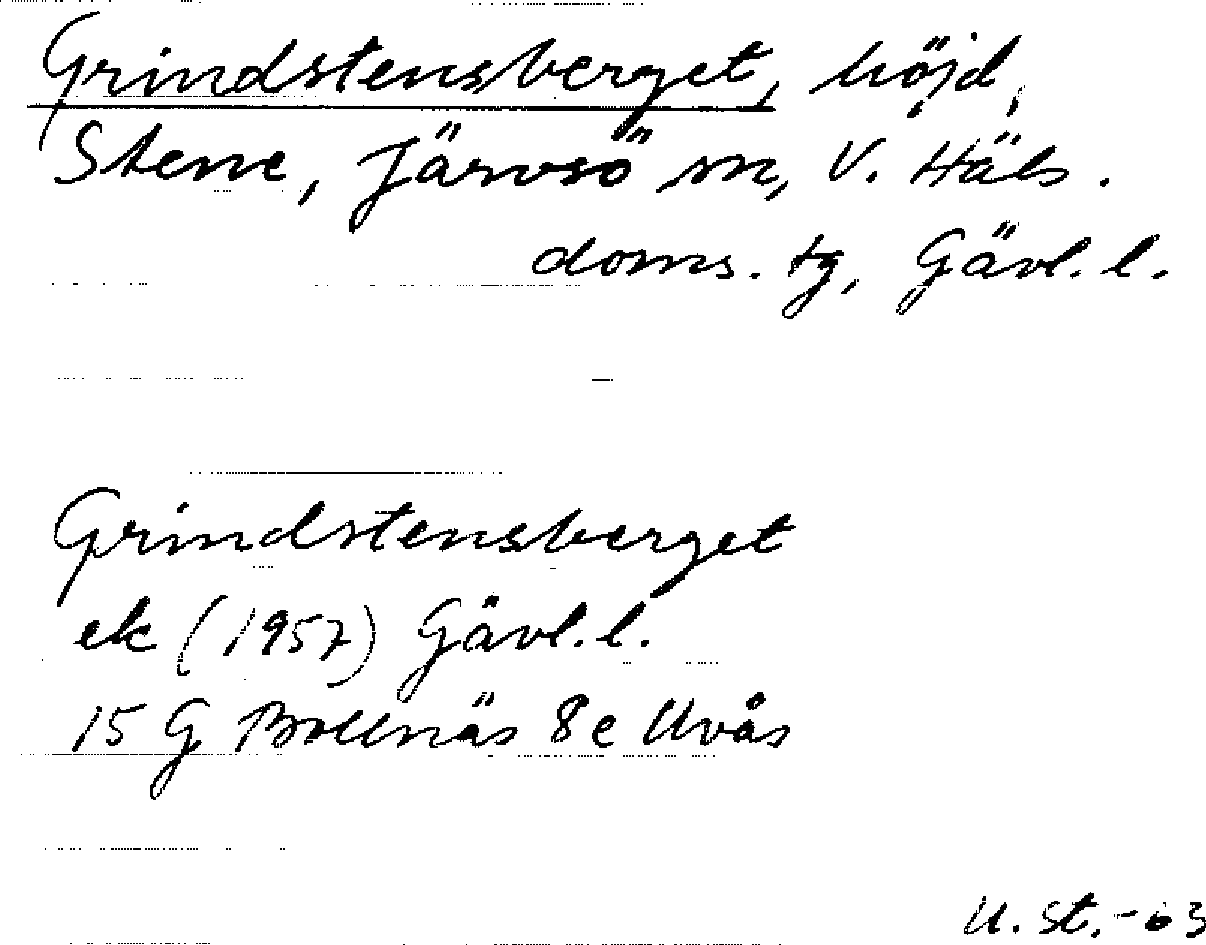 Grindstensberget, höjd,
Stene, Järvsö sn, V. Häls.
doms. tg, Gävl. l.
Grindstensberget
ek (1957) Gävl. l.
15 G Bollnäs 8e Uvås
U. St. -63